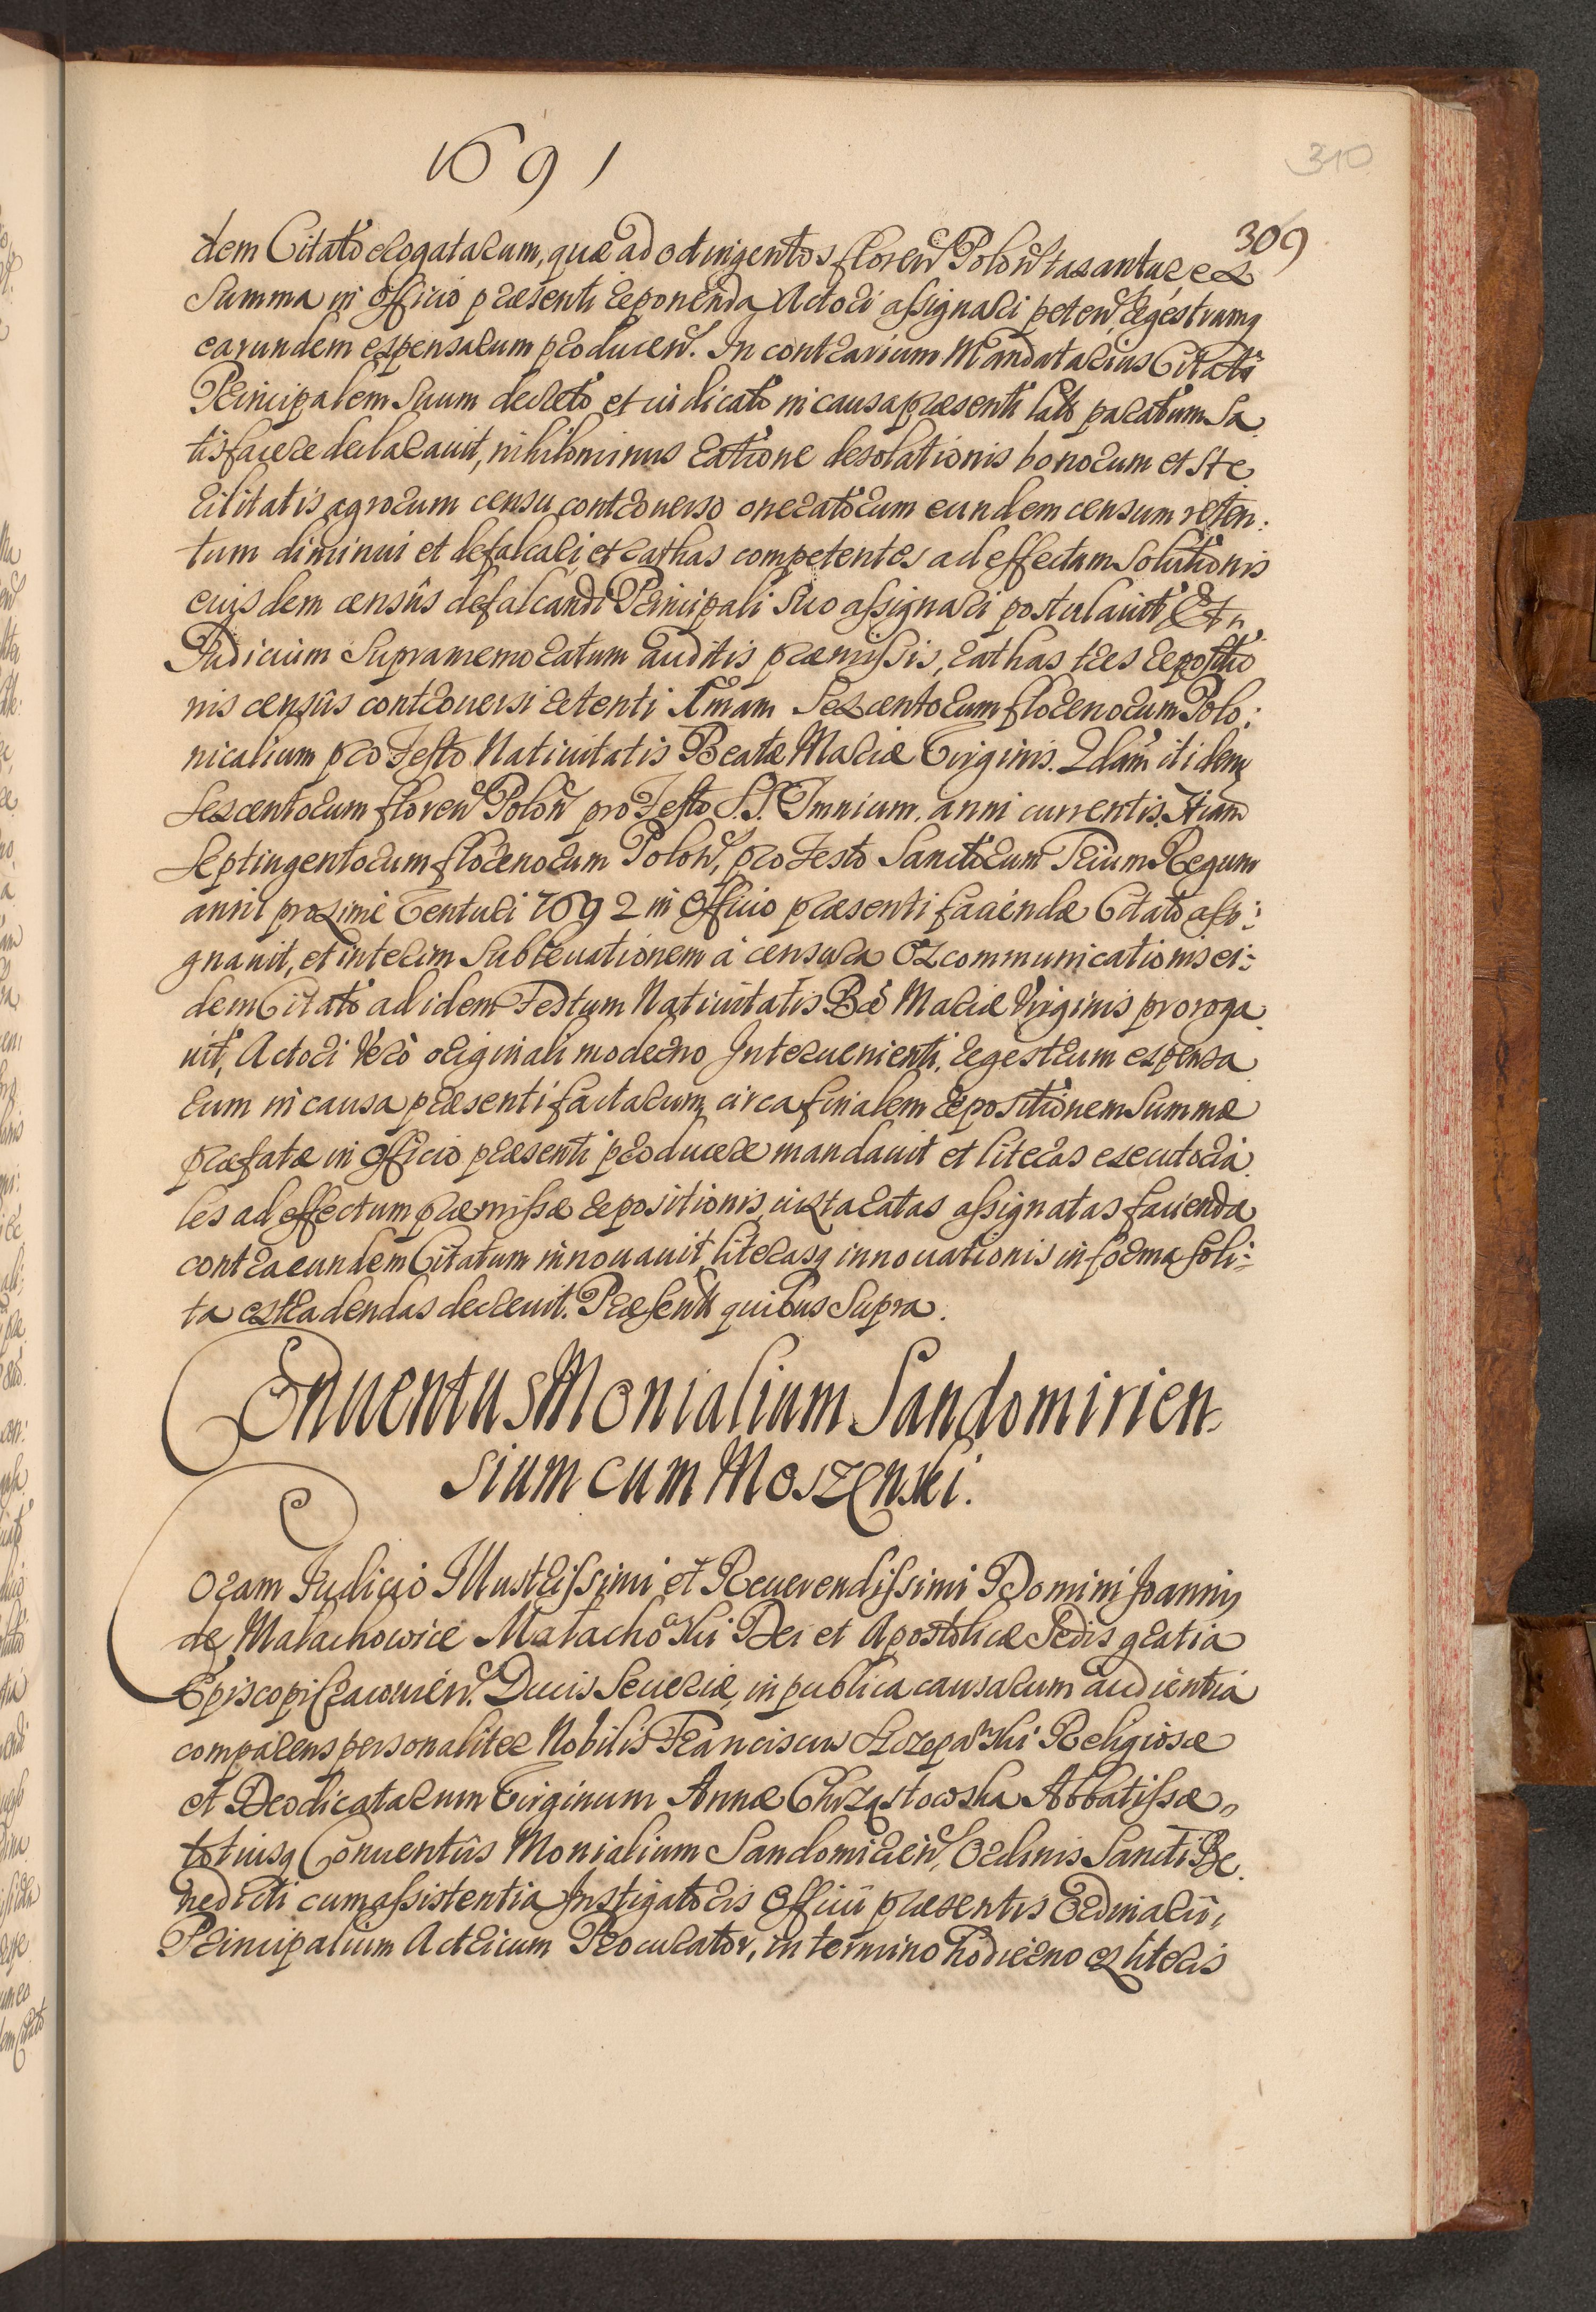 1691
310
309
dem Citato erogatarum, quæ ad octingentos floren Polon taxantur, ex
Summa in Officio præsenti reponenda Actori assignari peten, regestrumq
earundem expensarum producen. In contrarium Mandatarius Citati
Principalem Suum decreto et iudicato in causa præsenti lato paratum Sa
tisfacere declarauit, nihilominus ratione desolationis bonorum et ste
rilitatis agrorum censu controverso oneratorum eundem censum reten:
tum diminui et defalcari et rathas competentes ad effectum Solutionis
eiusdem censûs defalcandi Principali Suo assignari postulauit, Et
Iudicium Supramemoratum auditis præmissis, rathas tres repositio
nis censûs controuersi retenti Imam Sexcentorum florenorum Polo:
nicalium pro Festo Natiuitatis Beatæ Mariæ Virginis. 2dam itidem
Sexcentorum floren Polon pro Festo S.S. Omnium. anni currentis. 3tiam
Septingentorum florenorum Polon, pro Festo Sanctorum Trium Regum
anni proxime Venturi 1692 in Officio præsenti faciendæ Citato assi:
gnauit, et interim Subleuationem à censura Excommunicationis ei:
dem Citato ad idem Festum Natiuitatis Bæ Mariæ Virginis proroga
uit, Actori Verò originali moderno Interuenienti, regestrum expensa
rum in causa præsenti factarum circa finalem repositionem Summæ
præfatæ in Officio præsenti producere mandauit et literas executoria
les ad effectum præmissæ repositionis iuxta ratas assignatas facienda
contra eundem Citatum innouauit, literasq innouationis in forma soli:
ta extradendas decreuit. Præsentt quibus Supra.
Conuentus Monialium Sandomirien:
sium cum Moszenski.
Coram Iudicio Illustrissimi et Reuerendissimi Domini Joannis
de Małachowice Małachowski Dei et Apostolicæ Sedis gratia
Episcopi Cracouien. Ducis Seueriæ, in publica causarum audientia
comparens personaliter Nobilis Franciscus Szczepański Religiosæ
et Deodicatarum Virginum Annæ Chrząstowska Abbatissæ,
totiusq Conuentûs Monialium Sandomirien, Ordinis Sancti Be
nedicti cum assistentia Instigatoris Officii præsentis Ordinarii,
Principalium Actricum Procurator, in termino hodierno ex literis